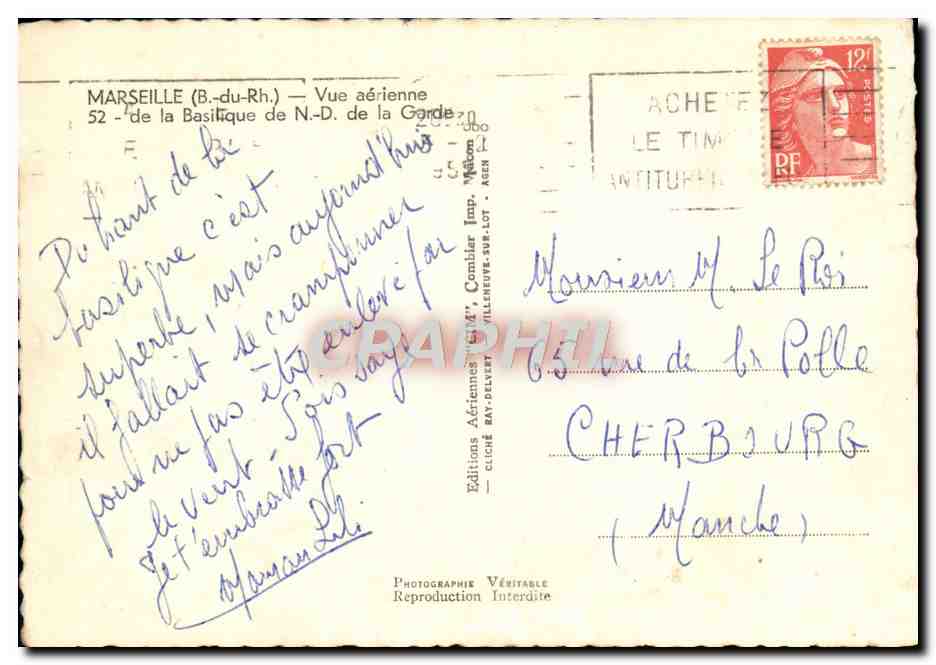 MARSEILLE (B.-du-Rh.) — Vue aérienne
52 - de la Basilique de N.-D. de la Garde
Du haut de la
basilique c'est
superbe, mais aujourd'hui
il fallait se cramponner
pour ne pas être enlevé par
le vent. Sois sage
Je t'embrasse fort
Maman Lili
Editions Aériennes "CIM", Combier Imp. Mâcon
— CLICHÉ RAY-DELVERT VILLENEUVE-SUR-LOT - AGEN
ACHETEZ
LE TIM
ANTITUBE
12F
POSTES
RF
Monsieur M. Le Roi
65 rue de la Polle
CHERBOURG
(Manche)
PHOTOGRAPHIE VÉRITABLE
Reproduction Interdite
CPAPHIL